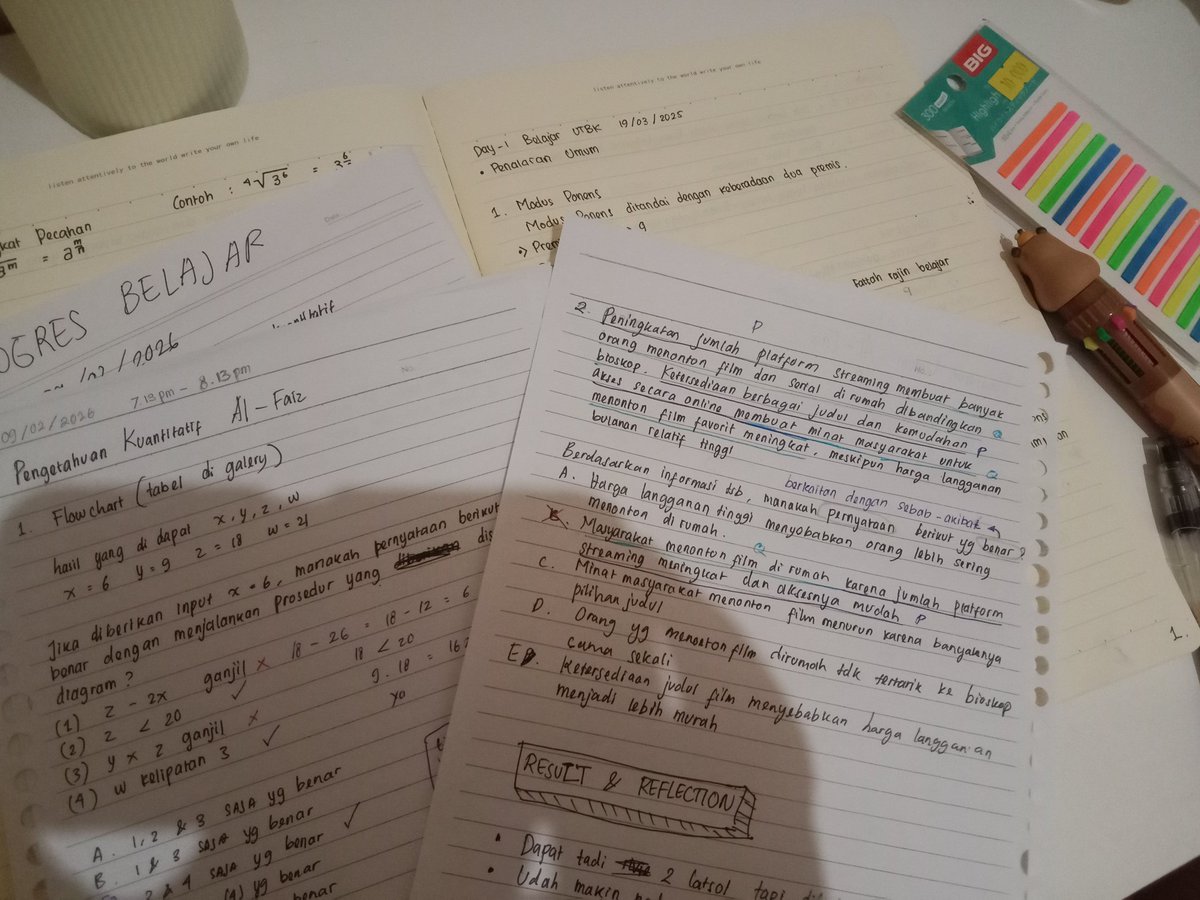 listen attentively to the world write your own life
Contoh : ⁴√3⁶ = 3
kat Pecahan
listen attentively to the world write your own life
Day-1 Belajar UTBK 19/03/2025
• Penalaran Umum
1. Modus Ponens
Modus Ponens ditandai dengan keberadaan dua premis.
Fatsah rajin belajar
q
BIG
300
Highligh
10.000
OGRES BELAJAR
/02/2026
No.
09/02/2026 7.13pm - 8.13pm
Pengetahuan Kuantitatif Al-Faiz
1. Flowchart (tabel di galery)
hasil yang di dapat x, y, z, w
x = 6 y = 9 z = 18 w = 21
Jika diberikan input x = 6, manakah pernyataan berikut
benar dengan menjalankan prosedur yang dis
diagram?
(1) z - 2x ganjil × 18 - 26 = 18 - 12 = 6
(2) z < 20 ✓ 18 < 20
(3) y x z ganjil × 9. 18 = 162
(4) w kelipatan 3 ✓
A. 1, 2 & 3 SAJA yg benar
B. 1 & 3 SAJA yg benar
2 & 4 SAJA yg benar ✓
(4) yg benar
benar
P
2. Peningkatan jumlah platform streaming membuat banyak
orang menonton film dan serial di rumah dibandingkan Q
bioskop. Ketersediaan berbagai judul dan kemudahan P
akses secara online membuat minat masyarakat untuk Q
menonton film favorit meningkat, meskipun harga langganan
bulanan relatif tinggi
berkaitan dengan sebab-akibat
Berdasarkan informasi tsb, manakah pernyataan berikut yg benar?
A. Harga langganan tinggi menyebabkan orang lebih sering
menonton di rumah.
B. Masyarakat menonton film di rumah karena jumlah platform
streaming meningkat dan aksesnya mudah P
C. Minat masyarakat menonton film menurun karena banyaknya
pilihan judul
D. Orang yg menonton film dirumah tdk tertarik ke bioskop
cama sekali
E. Ketersediaan judul film menyebabkan harga langganan
menjadi lebih murah
RESULT & REFLECTION
• Dapat tadi 2 latsol tapi
• Udah makin
1.